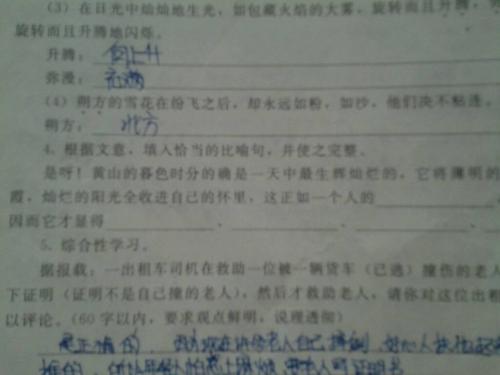 （3）在日光中灿灿地生光，如包藏火焰的大雾，旋转而且升腾，
旋转而且升腾地闪烁。
升腾：向上升
弥漫：充满
（4）朔方的雪花在纷飞之后，却永远如粉，如沙，他们决不粘连，
朔方：北方
4．根据文意，填入恰当的比喻句，并使之完整。
是呀！黄山的暮色时分的确是一天中最生辉灿烂的，它将薄明的
霞，灿烂的阳光全收进自己的怀里，这正如一个人的
因而它才显得 、 、 、
5．综合性学习。
据报载：一出租车司机在救助一位被一辆货车（已逃）撞伤的老人
下证明（证明不是自己撞的老人），然后才救助老人，请你对这位出租
以评论。（60字以内，要求观点鲜明，说理透彻）
是正确的，老人自己摔倒，好心人